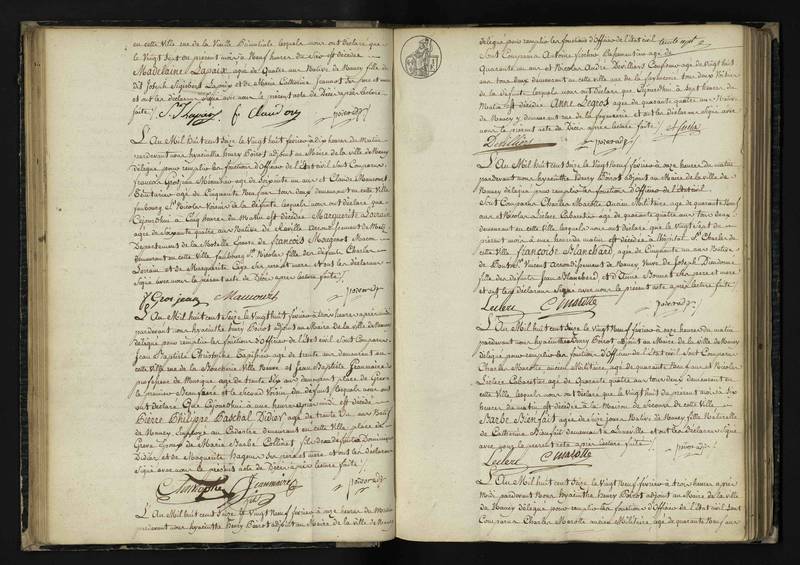 en cette Ville rue de la Vieille Primatiale lesquels nous ont déclaré que
le Vingt Sept du présent mois à Neuf heures du Soir est décédée
Madelaine Lapaix agée de Quatre ans Native de Nancy fille de
dit Joseph Sigisbert Lapaix et de Marie Catherine Jeannot Ses père et mère
et ont les déclarans Signé avec nous le présent acte de Décès après lecture
faite
L'An Mil huit cent Seize le Vingt huit février à dix heures du Matin
pardevant nous hyacinthe henry Poirot adjoint au Maire de la ville de Nancy
délégué pour remplir les fonctions d'Officier de l'état civil Sont Comparus
François Grosjean agé de Soixante un ans et Claude
agé de Cinquante Neuf ans tous deux demeurant en cette Ville
faubourg St Nicolas Voisins de la défunte lesquels nous ont déclaré que
Cejourd'hui à Cinq heures du Matin est décédée Marguerite Lorrain
agée de Soixante quatre ans Native de arrondissement de
Département de la Moselle Epouse de François Mougenot Maçon
demeurant en cette Ville faubourg St Nicolas fille des défunts Charles
Lorrain et de Marguerite Ses père et mère et ont les déclarans
Signé avec nous le présent acte de Décès après lecture faite
Grosjean
L'An Mil huit cent Seize le Vingt huit février à trois heures après midi
pardevant nous hyacinthe henry Poirot adjoint au Maire de la ville de Nancy
délégué pour remplir les fonctions d'Officier de l'état civil Sont Comparus
Jean Baptiste Christophe agé de trente ans demeurant en
cette Ville rue de la Boucherie Ville Neuve et Jean Baptiste Jeanmaire
professeur de Musique agé de trente Six ans demeurant place de Grève
le premier et le Second Voisin du défunt lesquels nous ont
déclaré que Cejourd'hui à une heure après midi est décédé
Pierre Philippe Paschal Didier agé de trente Un ans Natif
de Nancy demeurant en cette Ville place de
Grève Epoux de Marie Barbe Collinet fils des défunts Dominique
Didier et de Marguerite Ses père et mère et ont les déclarans
Signé avec nous le présent acte de Décès après lecture faite
Christophe Jeanmaire
L'An Mil huit cent Seize le Vingt Neuf février à onze heures du Matin
pardevant nous hyacinthe henry Poirot adjoint au Maire de la ville de Nancy
délégué pour remplir les fonctions d'Officier de l'état civil
Sont Comparus Antoine agé de
Quarante un ans et Nicolas André Devilliers agé de Vingt huit
ans tous deux demeurant en cette ville rue de la tous deux Voisins
de la défunte lesquels nous ont déclaré que Cejourd'hui à Sept heures du
Matin est décédée Anne Legros agée de quarante quatre ans Native
de Nancy y demeurant rue de la et ont les déclarans signé avec
nous le présent acte de Décès après lecture faite
L'An Mil huit cent Seize le Vingt Neuf février à onze heures du matin
pardevant nous hyacinthe henry Poirot adjoint au Maire de la ville de
Nancy délégué pour remplir les fonctions d'Officier de l'état civil
Sont Comparus Charles Marotte ancien Militaire agé de quarante Neuf
ans et Nicolas Leclere Cabaretier agé de quarante quatre ans tous deux
demeurant en cette ville lesquels nous ont déclaré que le Vingt Sept du
présent mois à une heure du matin est décédée à l'hôpital St Charles de
cette Ville Françoise Blanchard agée de Cinquante un ans Native
de Vincent arrondissement de Nancy Veuve de Joseph Dieudonné
fille des défunts Jean Blanchard et d'Anne Ses père et mère
et ont les déclarans Signé avec nous le présent acte de Décès après lecture faite
Leclere C Marotte
L'An Mil huit cent Seize le Vingt Neuf février à onze heures du Matin
pardevant nous hyacinthe henry Poirot adjoint au Maire de la Ville de Nancy
délégué pour remplir les fonctions d'Officier de l'état civil Sont Comparus
Charles Marotte ancien Militaire, agé de quarante Neuf ans et Nicolas
Leclere Cabaretier agé de Quarante quatre ans tous deux demeurant en
cette Ville, lesquels nous ont déclaré que le Vingt huit du présent mois à dix
heures du matin est décédée à la Maison de Secours de cette Ville
Barbe Bienfait agée de dix jours Native de Nancy fille Naturelle
de Catherine Bienfait demeurant à et ont les déclarans Signé
avec nous le présent acte après lecture faite
Leclere C Marotte
L'An Mil huit cent Seize le Vingt Neuf février à trois heures après
Midi pardevant Nous hyacinthe henry Poirot adjoint au Maire de la ville
de Nancy délégué pour remplir les fonctions d'Officier de l'état civil Sont
Comparus Charles Marotte ancien Militaire, agé de quarante Neuf ans